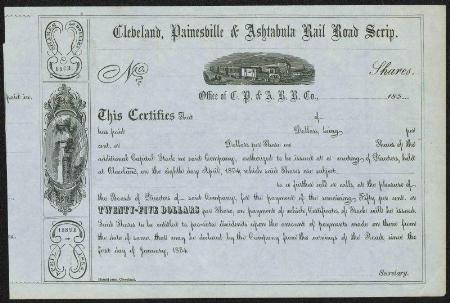 Cleveland, Painesville & Ashtabula Rail Road Scrip.
No.
Shares.
Office of C. P. & A. R. R. Co., 185
This Certifies That of
has paid Dollars, being per
cent. on Dollars per Share on Shares of the
additional Capital Stock in said Company, authorized to be issued at a meeting of Directors, held
at Cleveland, on the eighth day April, 1854, which said Shares are subject
to a further call or calls, at the pleasure of
the Board of Directors of said Company, for the payment of the remaining Fifty per cent. or
TWENTY-FIVE DOLLARS per Share, on payment of which, Certificates of Stock will be issued.
Said Shares to be entitled to pro-rata dividends upon the amount of payments made on them from
the date of same, that may be declared by the Company from the earnings of the Road since the
first day of January, 1854.
Secretary.
Cleveland.
ISSUE
OF